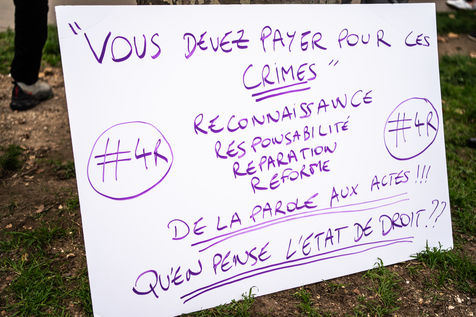 "VOUS DEVEZ PAYER POUR CES
CRIMES"
RECONNAISSANCE
RESPONSABILITÉ
#4R
RÉPARATION
#4R
RÉFORME
DE LA PAROLE AUX ACTES!!!
QU'EN PENSE L'ÉTAT DE DROIT??